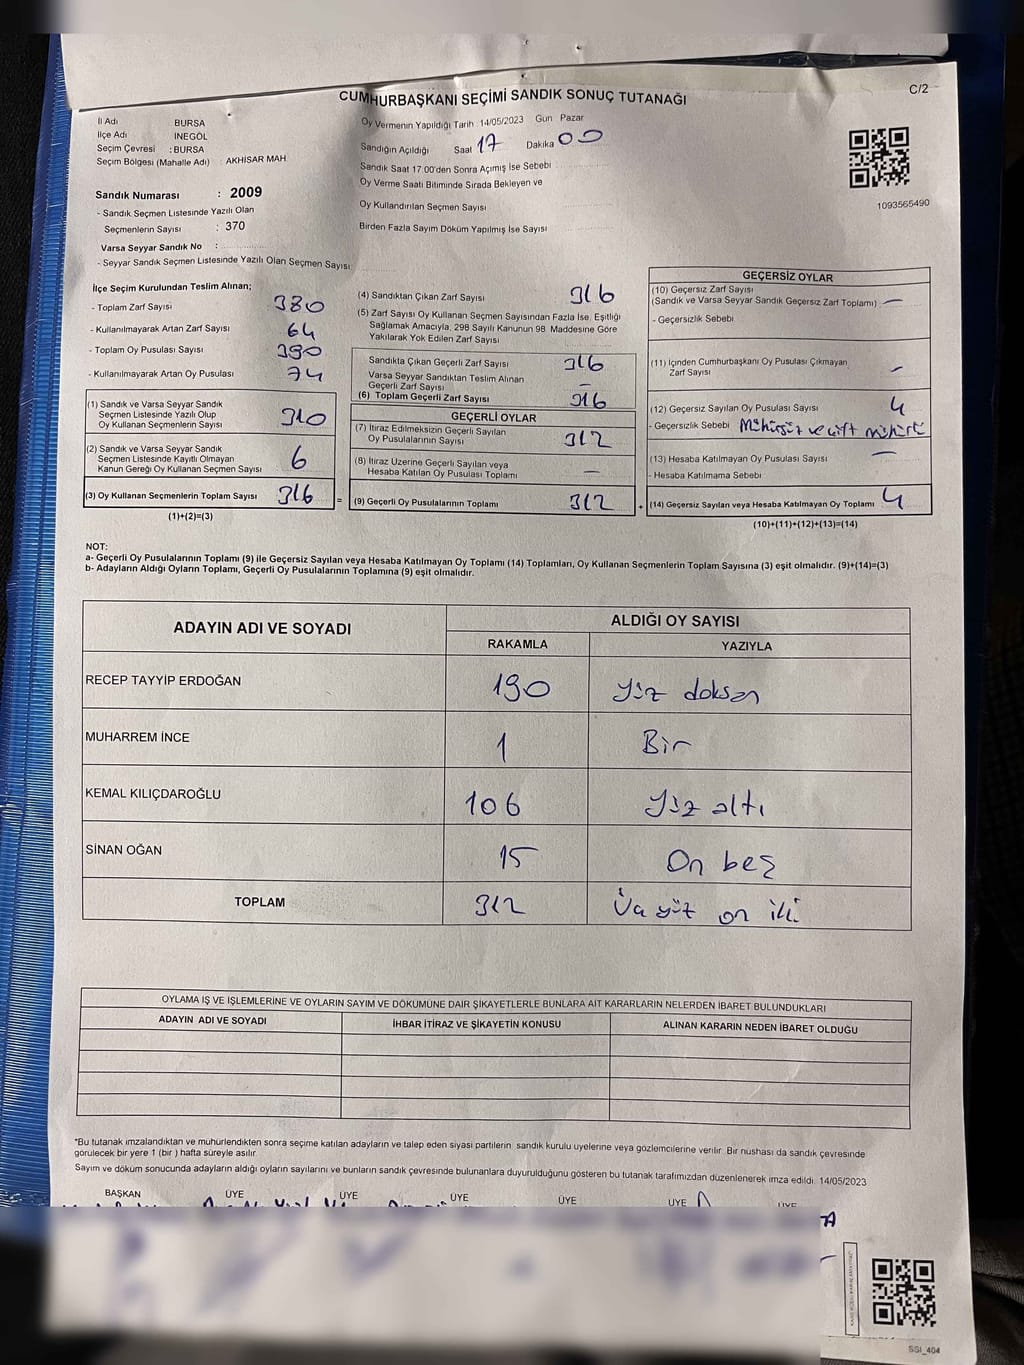 CUMHURBAŞKANI SEÇİMİ SANDIK SONUÇ TUTANAĞI
C/2
İl Adı BURSA
İlçe Adı İNEGÖL
Seçim Çevresi : BURSA
Seçim Bölgesi (Mahalle Adı) : AKHİSAR MAH
Sandık Numarası : 2009
- Sandık Seçmen Listesinde Yazılı Olan
Seçmenlerin Sayısı : 370
Varsa Seyyar Sandık No :
- Seyyar Sandık Seçmen Listesinde Yazılı Olan Seçmen Sayısı
Oy Vermenin Yapıldığı Tarih 14/05/2023 Gün Pazar
Sandığın Açıldığı Saat 17 Dakika 00
Sandık Saat 17 00'den Sonra Açımış İse Sebebi
Oy Verme Saati Bitiminde Sırada Bekleyen ve
Oy Kullandırılan Seçmen Sayısı
Birden Fazla Sayım Döküm Yapılmış İse Sayısı
1093565490
İlçe Seçim Kurulundan Teslim Alınan;
- Toplam Zarf Sayısı 380
- Kullanılmayarak Artan Zarf Sayısı 64
- Toplam Oy Pusulası Sayısı 390
- Kullanılmayarak Artan Oy Pusulası 74
(1) Sandık ve Varsa Seyyar Sandık
Seçmen Listesinde Yazılı Olup
Oy Kullanan Seçmenlerin Sayısı 310
(2) Sandık ve Varsa Seyyar Sandık
Seçmen Listesinde Kayıtlı Olmayan
Kanun Gereği Oy Kullanan Seçmen Sayısı 6
(3) Oy Kullanan Seçmenlerin Toplam Sayısı 316 =
(1)+(2)=(3)
(4) Sandıktan Çıkan Zarf Sayısı 316
(5) Zarf Sayısı Oy Kullanan Seçmen Sayısından Fazla İse, Eşitliği
Sağlamak Amacıyla, 298 Sayılı Kanunun 98. Maddesine Göre
Yakılarak Yok Edilen Zarf Sayısı
Sandıkta Çıkan Geçerli Zarf Sayısı 316
Varsa Seyyar Sandıktan Teslim Alınan
Geçerli Zarf Sayısı –
(6) Toplam Geçerli Zarf Sayısı 316
GEÇERLİ OYLAR
(7) İtiraz Edilmeksizin Geçerli Sayılan
Oy Pusulalarının Sayısı 312
(8) İtiraz Üzerine Geçerli Sayılan veya
Hesaba Katılan Oy Pusulası Toplamı –
(9) Geçerli Oy Pusulalarının Toplamı 312 +
GEÇERSİZ OYLAR
(10) Geçersiz Zarf Sayısı
(Sandık ve Varsa Seyyar Sandık Geçersiz Zarf Toplamı) –
- Geçersizlik Sebebi
(11) İçinden Cumhurbaşkanı Oy Pusulası Çıkmayan
Zarf Sayısı –
(12) Geçersiz Sayılan Oy Pusulası Sayısı 4
- Geçersizlik Sebebi Mühürsüz ve çift mühürlü
(13) Hesaba Katılmayan Oy Pusulası Sayısı –
- Hesaba Katılmama Sebebi
(14) Geçersiz Sayılan veya Hesaba Katılmayan Oy Toplamı 4
(10)+(11)+(12)+(13)=(14)
NOT:
a- Geçerli Oy Pusulalarının Toplamı (9) ile Geçersiz Sayılan veya Hesaba Katılmayan Oy Toplamı (14) Toplamları, Oy Kullanan Seçmenlerin Toplam Sayısına (3) eşit olmalıdır. (9)+(14)=(3)
b- Adayların Aldığı Oyların Toplamı, Geçerli Oy Pusulalarının Toplamına (9) eşit olmalıdır.
ADAYIN ADI VE SOYADI
ALDIĞI OY SAYISI
RAKAMLA YAZIYLA
RECEP TAYYİP ERDOĞAN 190 Yüz doksan
MUHARREM İNCE 1 Bir
KEMAL KILIÇDAROĞLU 106 Yüz altı
SİNAN OĞAN 15 On beş
TOPLAM 312 Üç yüz on iki
OYLAMA İŞ VE İŞLEMLERİNE VE OYLARIN SAYIM VE DÖKÜMÜNE DAİR ŞİKAYETLERLE BUNLARA AİT KARARLARIN NELERDEN İBARET BULUNDUKLARI
ADAYIN ADI VE SOYADI İHBAR İTİRAZ VE ŞİKAYETİN KONUSU ALINAN KARARIN NEDEN İBARET OLDUĞU
*Bu tutanak imzalandıktan ve mühürlendikten sonra seçime katılan adayların ve talep eden siyasi partilerin sandık kurulu üyelerine veya gözlemcilerine verilir. Bir nüshası da sandık çevresinde
görülecek bir yere 1 (bir) hafta süreyle asılır.
Sayım ve döküm sonucunda adayların aldığı oyların sayılarını ve bunların sandık çevresinde bulunanlara duyurulduğunu gösteren bu tutanak tarafımızdan düzenlenerek imza edildi. 14/05/2023
BAŞKAN ÜYE ÜYE ÜYE ÜYE ÜYE ÜYE
SSI_404